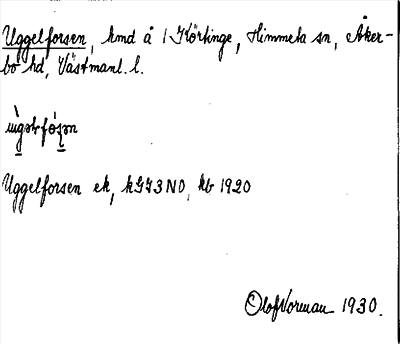 Uggelforsen, hmd å 1 Körtinge, Himmeta sn, Åker-
bo hd, Västmanl. l.
Uggelforsen ek, kGI3NO, kb 1920
Olof Vorman 1930.